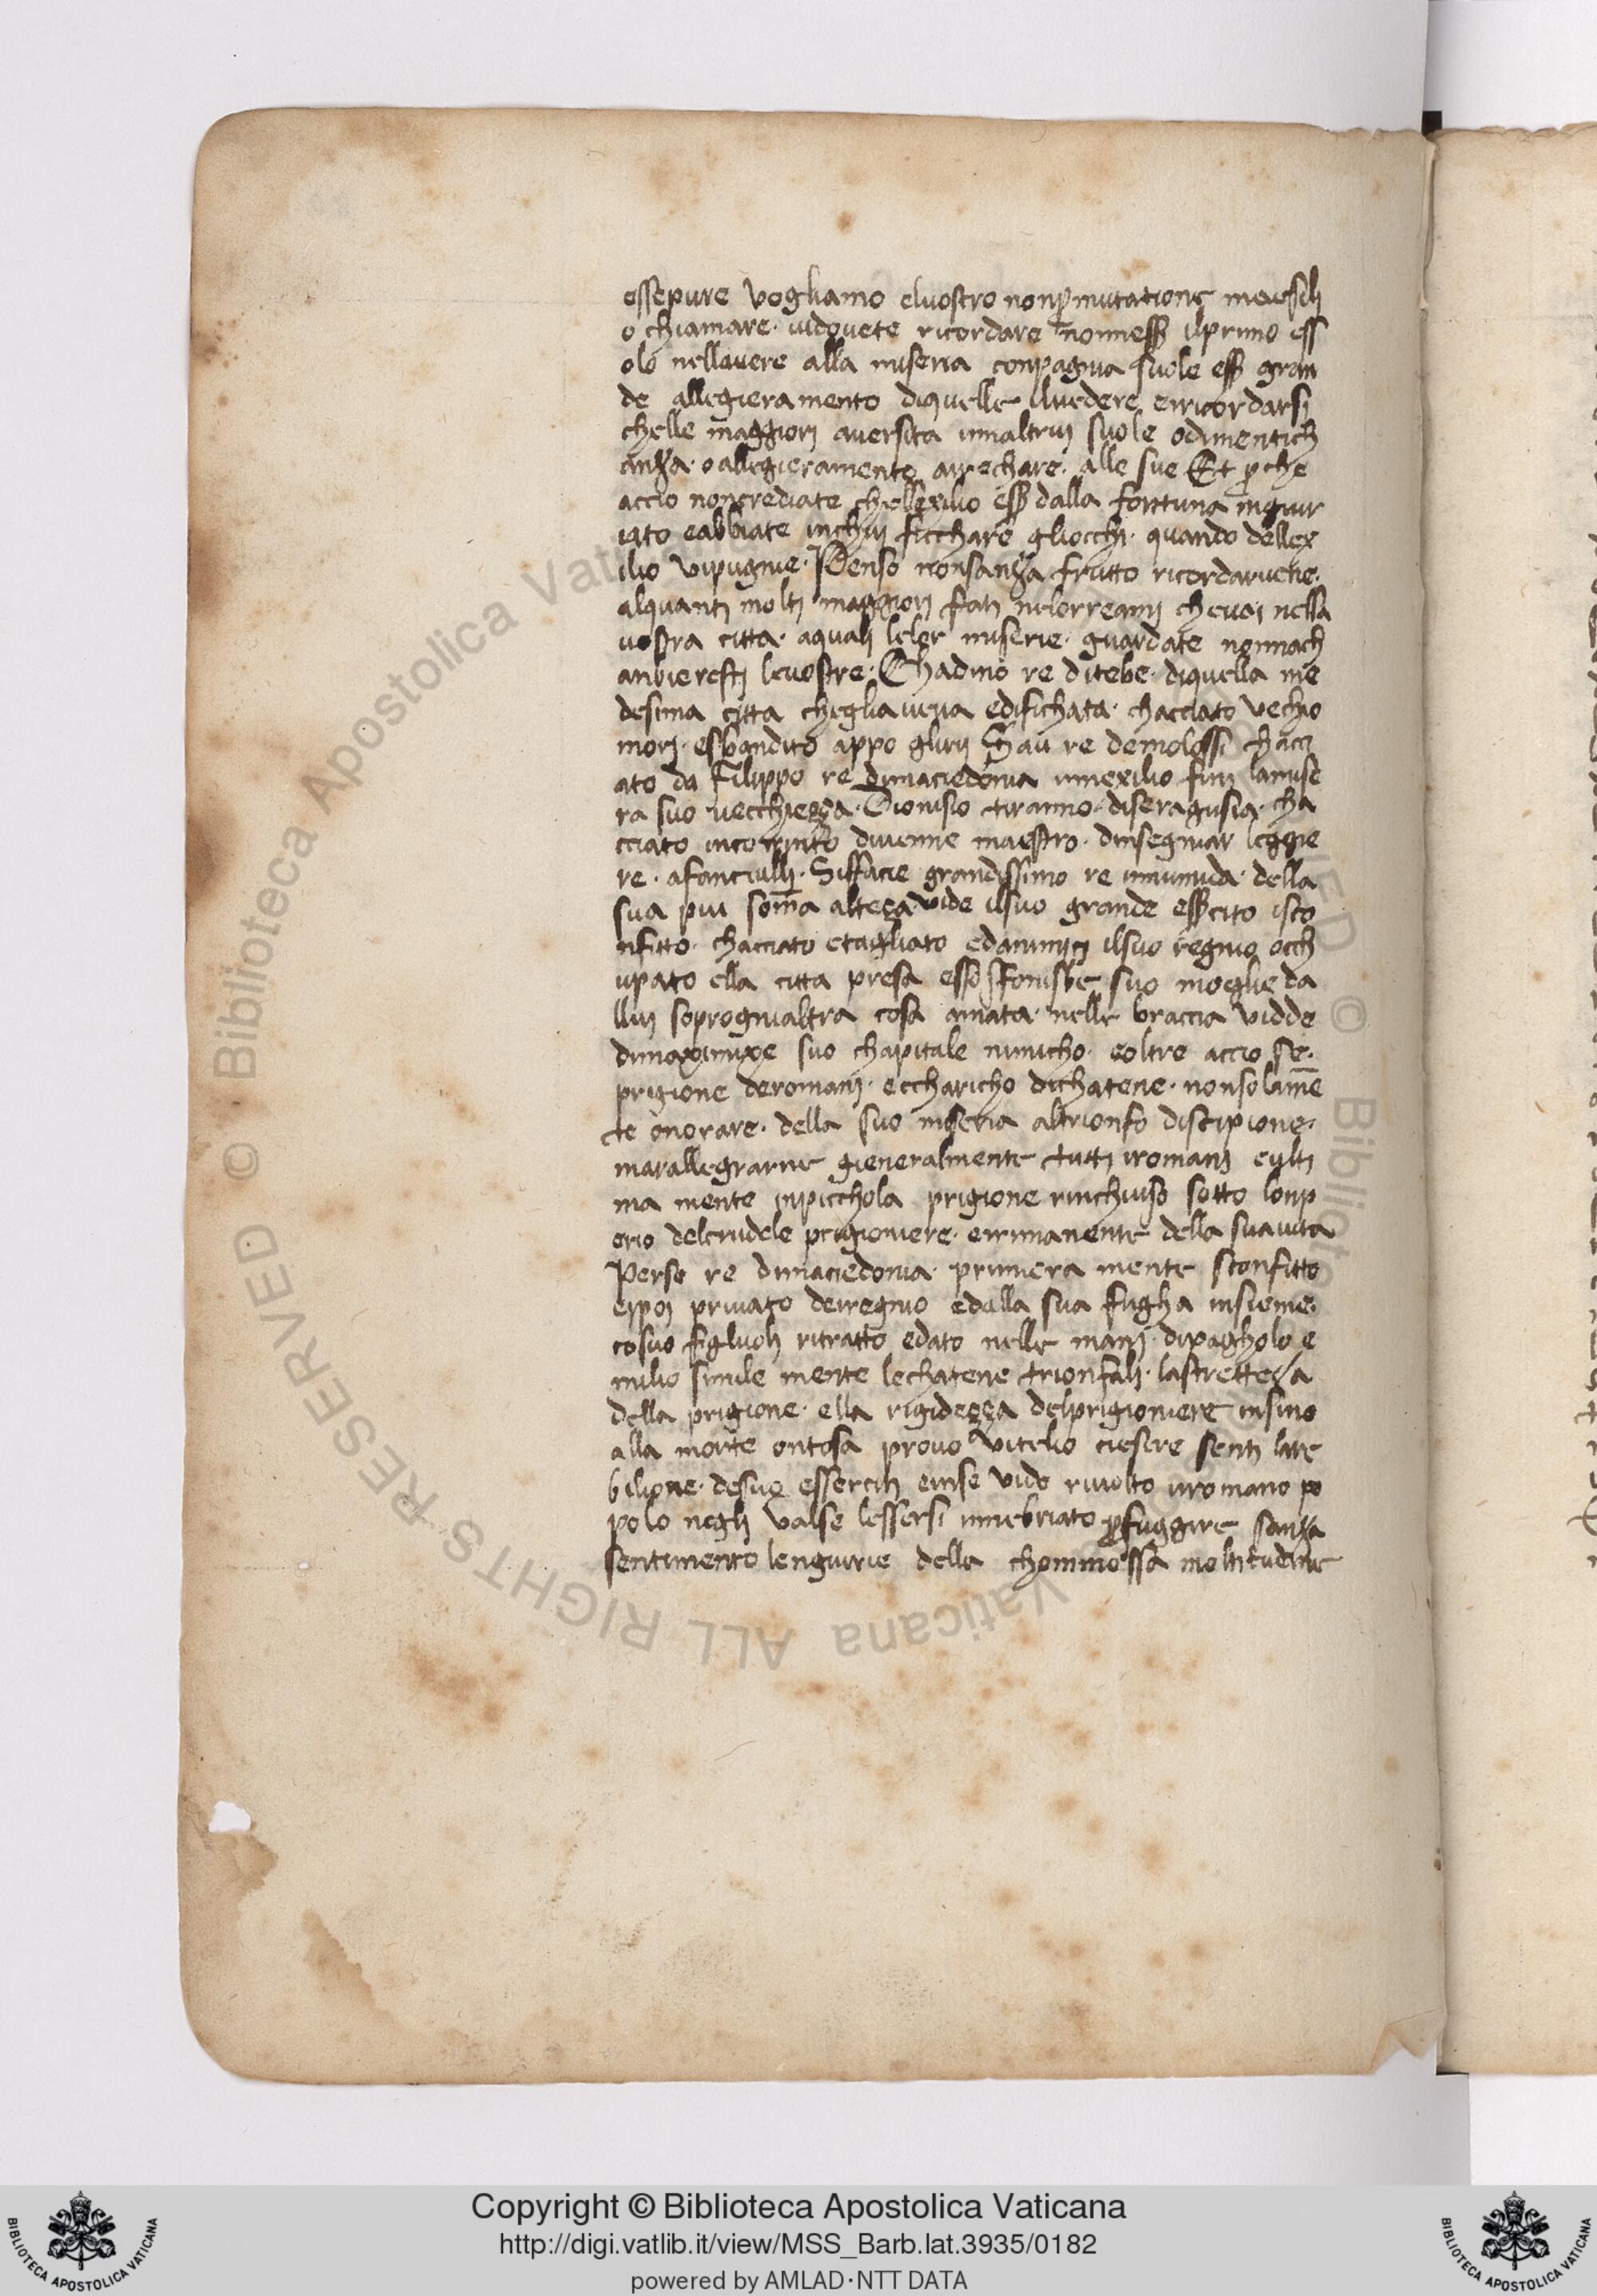 essepure vogliamo eluostro nonp̱mutatione meuesili
o chiamare · uidouete ricordare nonness̱ ilprimo ess
olo nellauere alla miseria conpagnia suole ess̱ gran
de allegieramento diquelle lluedere erricordarsi
chelle maggiorj auersita innaltruj suole odimentich
anza · o allegieramento arrechare · alle sue Et p̱che
accio noncrediate chellexilio ess̱ dalla forttuna ingiur
iato eabbiate inchuj ficchare gliocchi · quando dellex
ilio vipugnie · Penso nonsanza frutto ricordaruene ·
alquantj moltj maggiorj fatj neloro reamj cheuoi nella
uostra citta · aqualj lelor miserie · guardate nonnach
anbierestj leuostre · Chadino re ditebe · diquella me
desima citta cheglia ueua edifichata · chacciato vechio
morj · esbandito appo glirij Sau re demolossi chacci
ato da Filippo re dimaciedonia innexilio finj lamise
ra suo vecchiezza · Dionisio tiranno · diseragusia · cha
cciato incorinto diuenne maestro · dinsegniar leggie
re · afanciullj · Siffacie grandissimo re innumida · della
sua piu som̄a alteza vide ilsuo grande ess̱cito isco
nfitto · chacciato etagliato edanimjcj ilsuo regnio occh
upato ella citta presa esso sfonisbe suo moglie da
lluj soprogni altra cosa amata · nelle braccia vidde
dimaxinixe suo chapitale nimicho · eoltre accio se ·
prigione deromanj · eccharicho dichatene · nonsolamē
te onorare · della suo miseria altrionfo discipione ·
marallegrarne gieneralmente tuttj iromanj eultj
ma mente inpicchola prigione rinchiuso sotto lonp
erio delcrudele prigioniere · errimanente della suauita
Perse re dimaciedonia · primiera mente sconfitto
eppoj priuato delregnio edalla sua fugha insieme ·
cosuo figluolj ritratto edato nelle manj · dipagholo e
milio simile mente lechatene trionfalj · lastretteza
della prigione · ella rigidezza delprigioniere insino
alla morte ontosa prouo vitelio ciesere sentj lare
bilione · desuoi essercitj einse vide riuolto ilromano po
polo neglj valse lessersi innebriato p̱fuggire sanza
sentimento lengiurie della chommossa moltitudine
Copyright © Biblioteca Apostolica Vaticana
http://digi.vatlib.it/view/MSS_Barb.lat.3935/0182
powered by AMLAD·NTT DATA